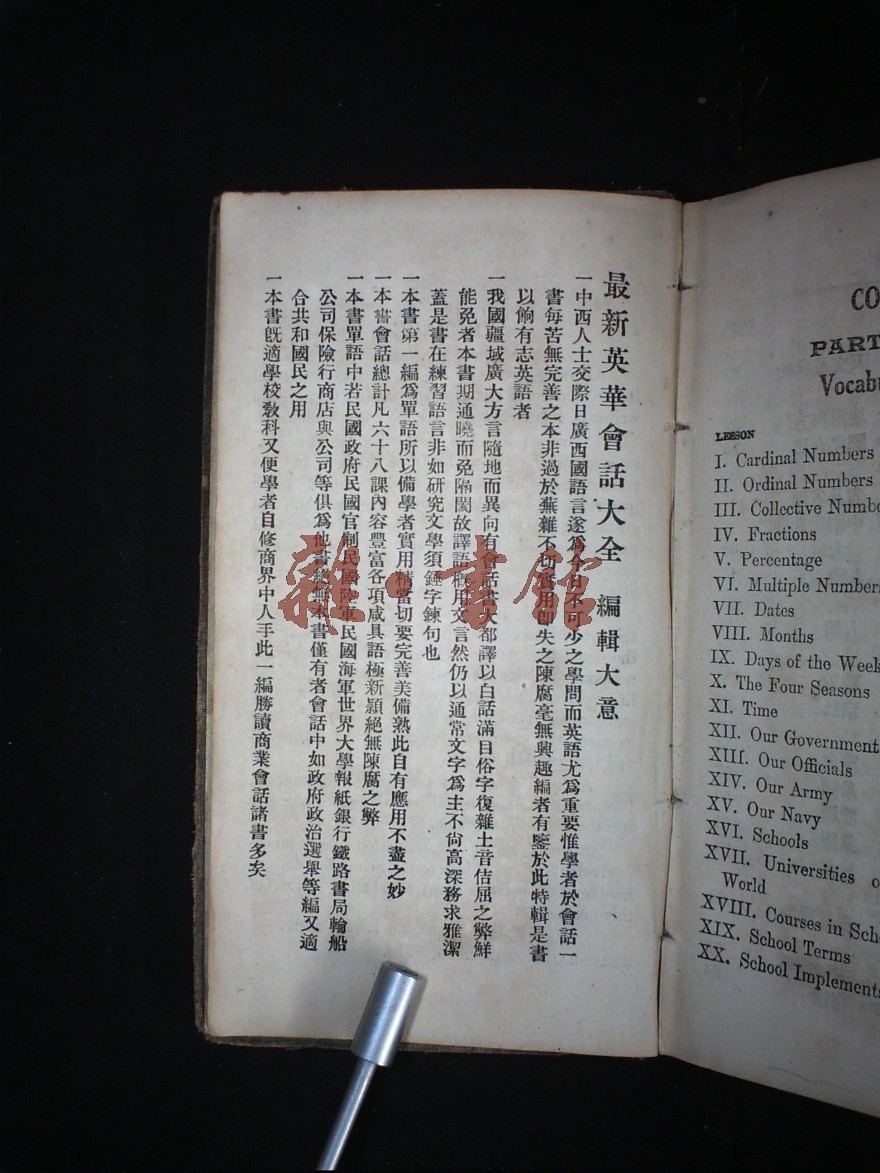 最新英華會話大全 編輯大意
一中西人士交際日廣西國語言遂爲今日不可少之學問而英語尤爲重要惟學者於會話一
書每苦無完善之本非過於蕪雜不切實用卽失之陳腐毫無興趣編者有鑒於此特輯是書
以餉有志英語者
一我國疆域廣大方言隨地而異向有會話書大都譯以白話滿目俗字復雜土音佶屈之弊鮮
能免者本書期通曉而免隔閡故譯語概用文言然仍以通常文字爲主不尙高深務求雅潔
蓋是書在練習語言非如研究文學須錘字鍊句也
一本書第一編爲單語所以備學者實用精當切要完善美備熟此自有應用不盡之妙
一本書會話總計凡六十八課內容豐富各項咸具語極新穎絕無陳腐之弊
一本書單語中若民國政府民國官制民國陸軍民國海軍世界大學報紙銀行鐵路書局輪船
公司保險行商店與公司等俱爲他書所無本書僅有者會話中如政府政治選舉等編又適
合共和國民之用
一本書旣適學校敎科又便學者自修商界中人手此一編勝讀商業會話諸書多矣
雜·書館
CO
PART
Vocabu
LESSON
I. Cardinal Numbers
II. Ordinal Numbers
III. Collective Numbe
IV. Fractions
V. Percentage
VI. Multiple Numbers
VII. Dates
VIII. Months
IX. Days of the Week
X. The Four Seasons
XI. Time
XII. Our Government
XIII. Our Officials
XIV. Our Army
XV. Our Navy
XVI. Schools
XVII. Universities o
World
XVIII. Courses in Scho
XIX. School Terms
XX. School Implements